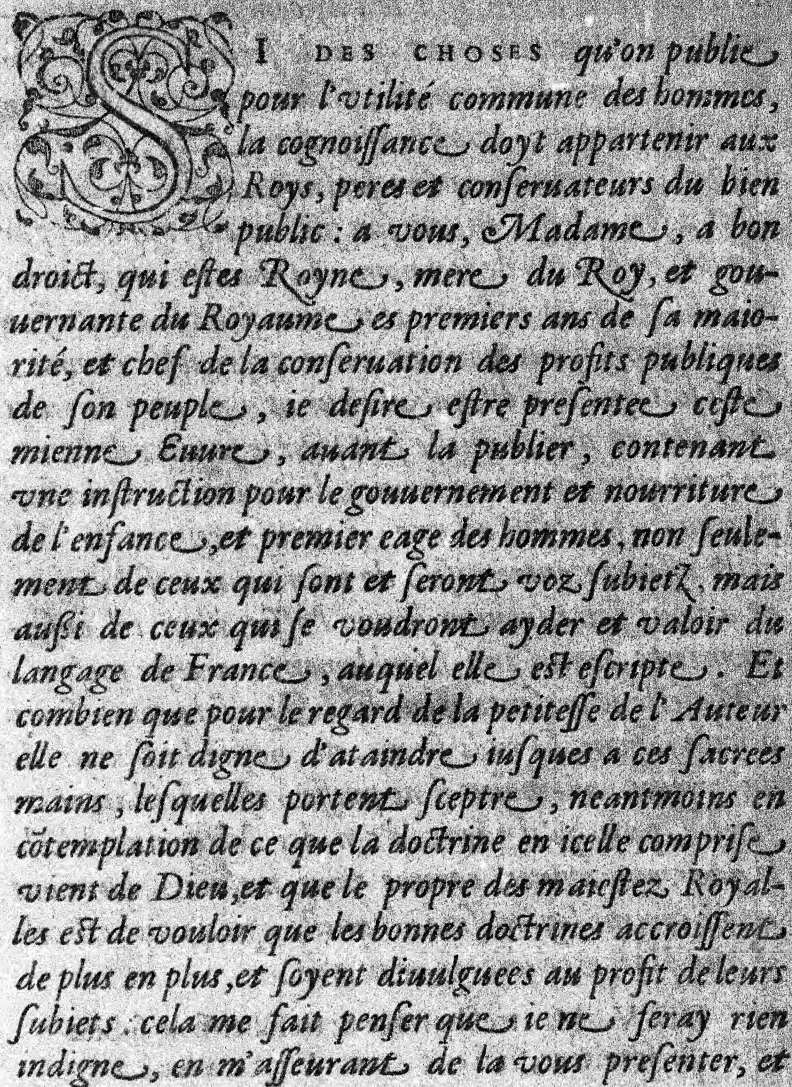 SI DES CHOSES qu'on publie
pour l'vtilité commune des hommes,
la cognoiſſance doyt appartenir aux
Roys, peres et conſeruateurs du bien
public : a vous, Madame, a bon
droict, qui eſtes Royne, mere du Roy, et gou-
uernante du Royaume es premiers ans de ſa maio-
rité, et chef de la conſeruation des profits publiques
de ſon peuple, ie deſire eſtre preſentee ceſte
mienne Euure, auant la publier, contenant
vne inſtruction pour le gouuernement et nourriture
de l'enfance, et premier eage des hommes, non ſeule-
ment de ceux qui ſont et ſeront voz ſubietz, mais
auſsi de ceux qui ſe voudront ayder et valoir du
langage de France, auquel elle eſt eſcripte. Et
combien que pour le regard de la petiteſſe de l'Auteur
elle ne ſoit digne d'ataindre iuſques a ces ſacrees
mains, leſquelles portent ſceptre, neantmoins en
cõtemplation de ce que la doctrine en icelle compriſe
vient de Dieu, et que le propre des maieſtez Royal-
les eſt de vouloir que les bonnes doctrines accroiſſent
de plus en plus, et ſoyent diuulguees au profit de leurs
ſubiets : cela me fait penſer que ie ne feray rien
indigne, en m'aſſeurant de la vous preſenter, et